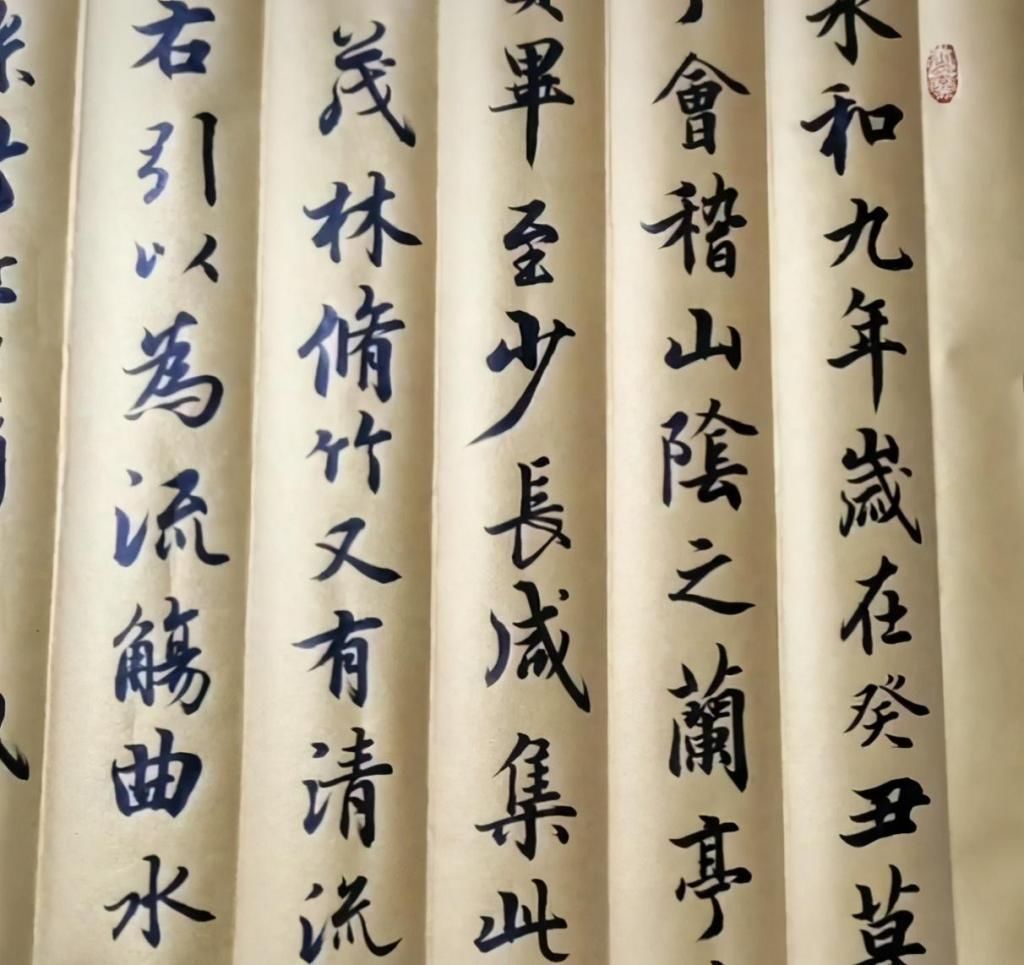 永和九年歲在癸丑暮
于會稽山陰之蘭亭
畢至少長咸集此
茂林脩竹又有清流
右引以為流觴曲水